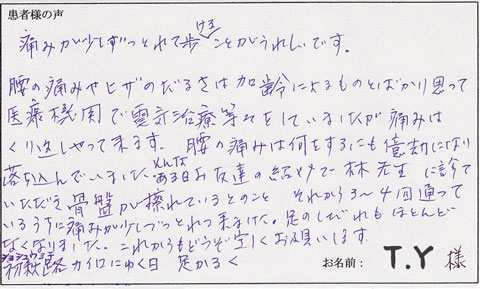 患者様の声
痛みが少しずつとれて歩けることがうれしいです。
腰の痛みやヒザのだるさは加齢によるものとばかり思って
医療機関で電気治療等々をしていましたが痛みは
くり返しやって来ます。腰の痛みは何をするにも億劫になり
落ち込んでいました。そんなある日お友達の紹介で林先生に診て
いただき骨盤が擦れているとのこと それから3〜4回通って
いるうちに痛みが少しづつとれて来ました。足のしびれもほとんど
なくなりました。これからもどうぞ宜しくお願いします。
初秋路 カイロにゆく日 足かるく
お名前: T.Y 様